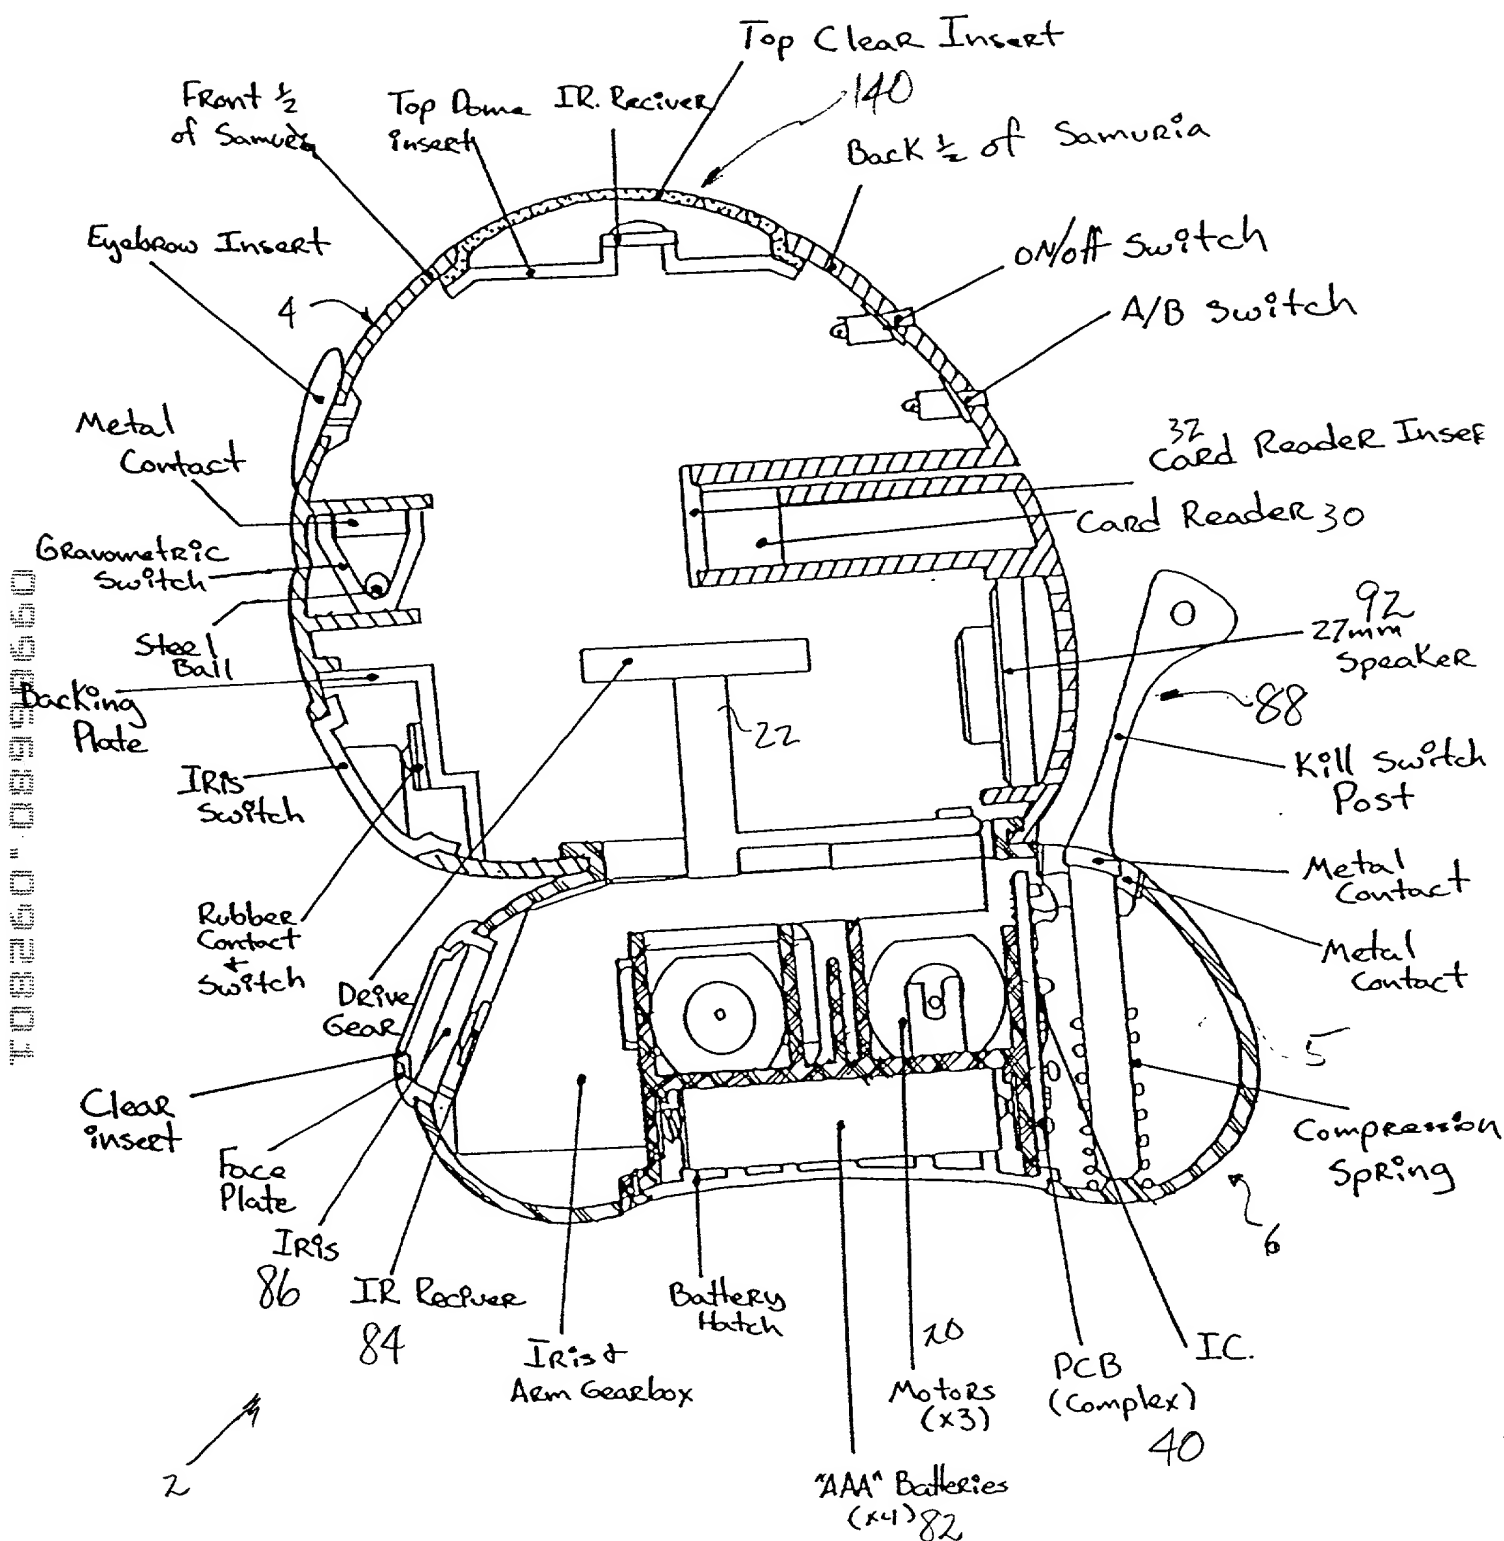 Top Clear Insert
140
Front 1/2
of Samuria
Top Dome
insert
IR. Reciver
Back 1/2 of Samuria
Eyebrow Insert
ON/Off Switch
4
A/B Switch
Metal
Contact
32
Card Reader Inser
Card Reader 30
Gravometric
Switch
Steel
Ball
92
27mm
Speaker
Backing
Plate
22
88
Iris
Switch
Kill Switch
Post
Metal
Contact
Rubber
Contact
+
Switch
Metal
Contact
Drive
Gear
5
Clear
insert
Compression
Spring
Face
Plate
6
Iris
86
IR Reciver
84
Battery
Hatch
Iris +
Arm Gearbox
20
Motors
(x3)
PCB
(Complex)
40
I.C.
2
"AAA" Batteries
(x4) 82